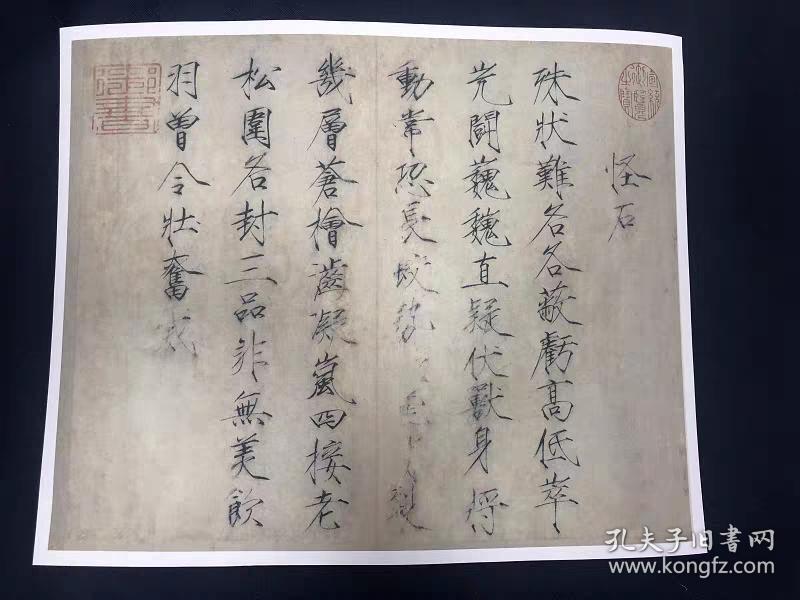 怪石
殊狀難名各蔽虧高低崒
屼鬪巍巍直疑伏獸身將
動常恐長蛟勢
幾層蒼檜凝嵐四接老
松圍名封三品非無美飲
羽曾令壯奮
孔夫子旧书网
www.kongfz.com